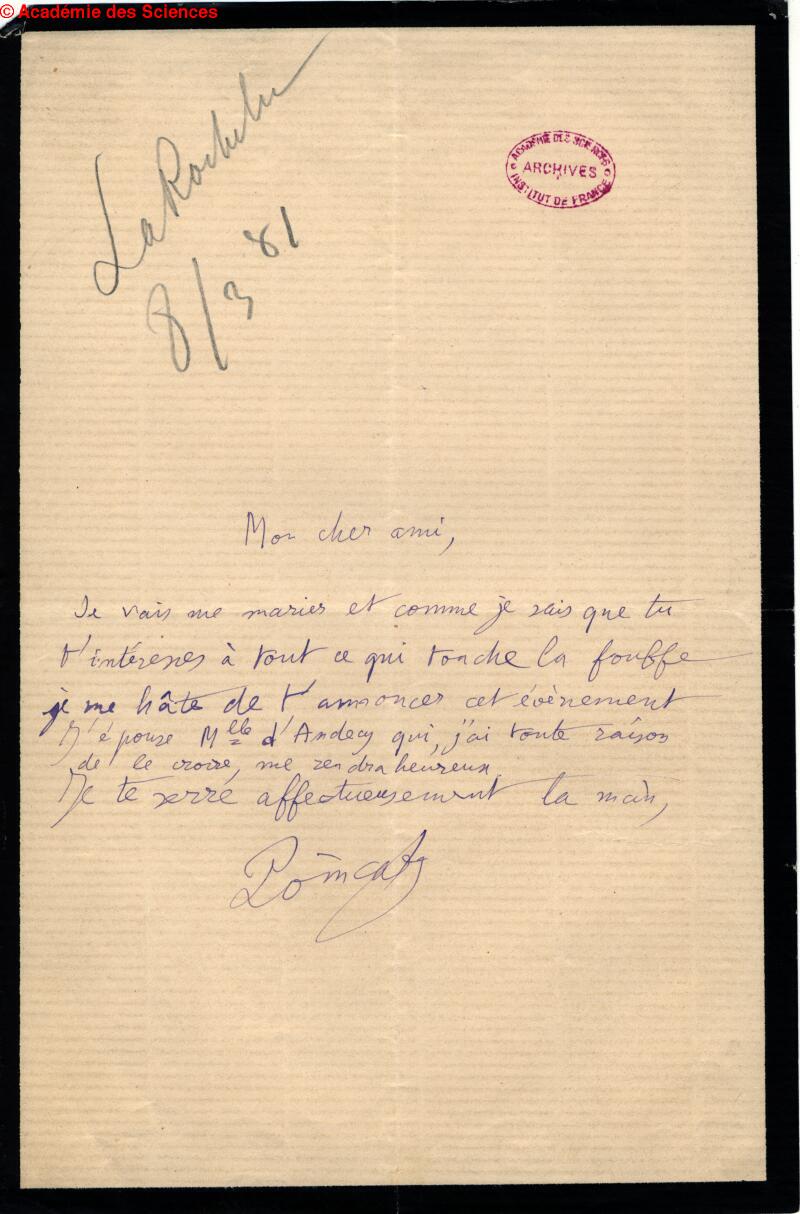 © Académie des Sciences
ACADÉMIE DES SCIENCES
ARCHIVES
INSTITUT DE FRANCE
8/3 81
Mon cher ami,
Je vais me marier et comme je sais que tu
t'intéresses à tout ce qui touche la
je me hâte de t'annoncer cet évènement
J'épouse Mlle d'Andecy qui, j'ai toute raison
de le croire, me rendra heureux
Je te serre affectueusement la main,
Poincaré